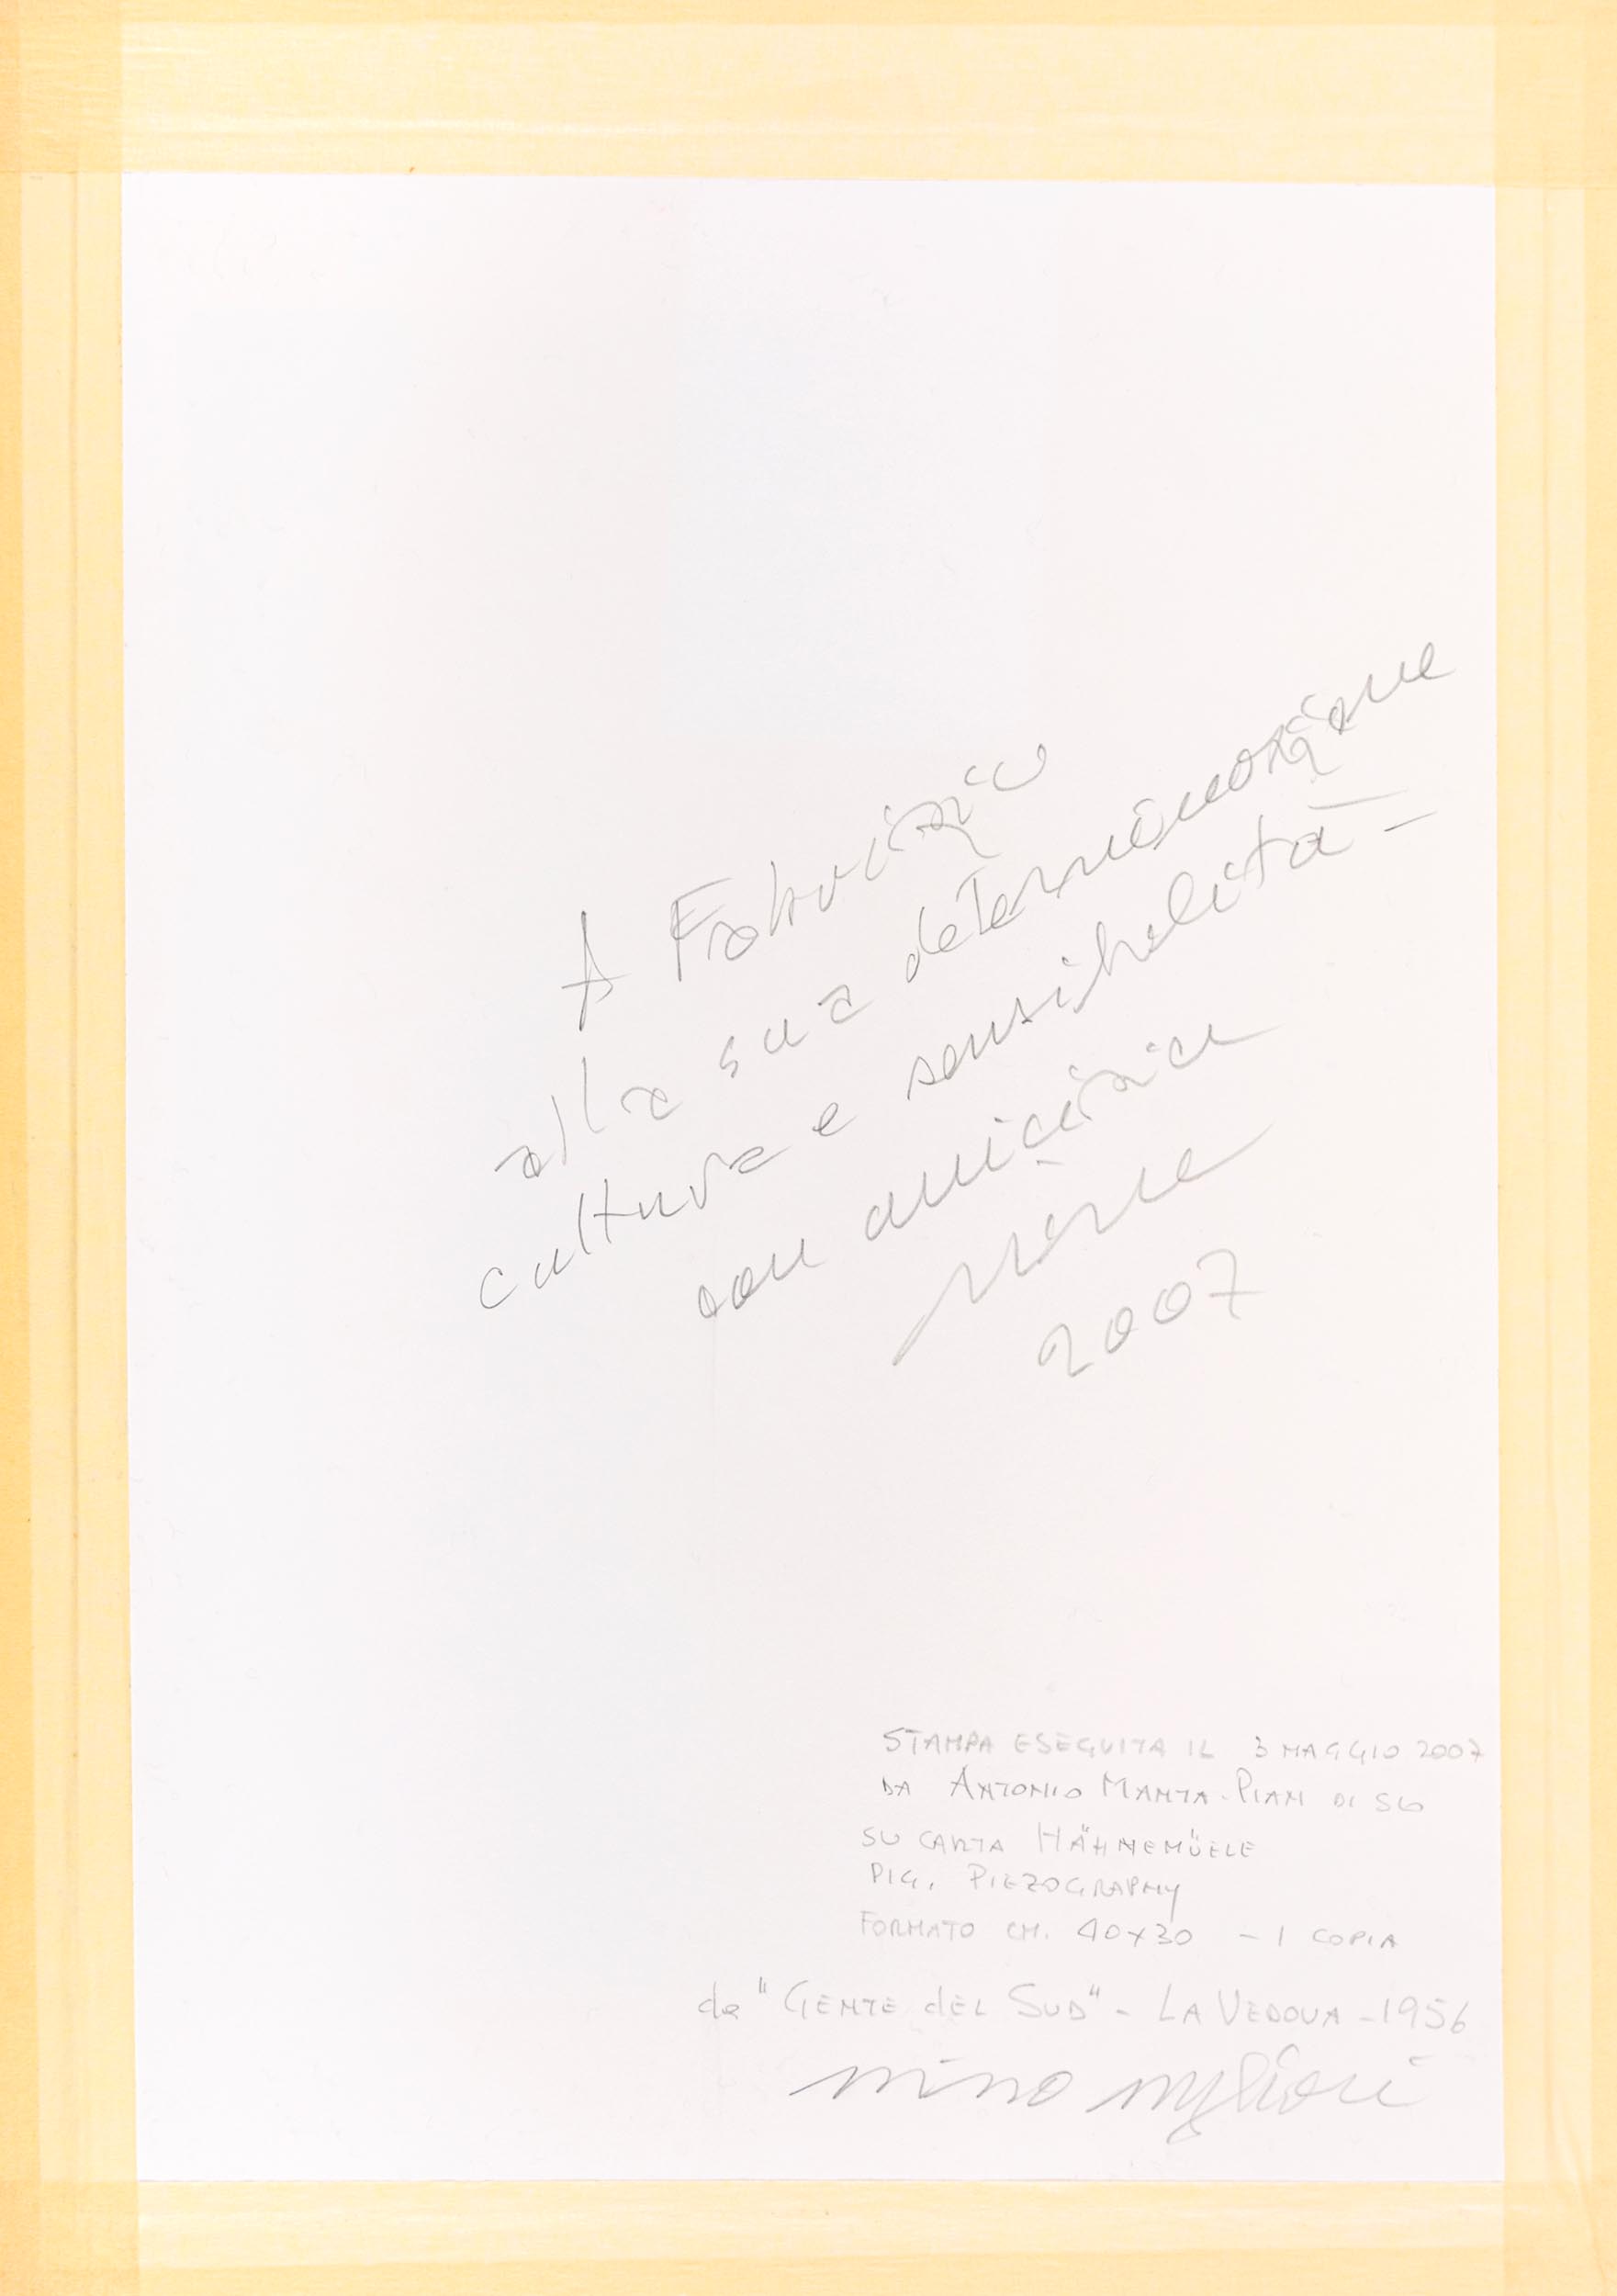 A Fabrizio
alla sua determinazione
cultura e sensibilità -
con amicizia
2007
STAMPA ESEGUITA IL 3 MAGGIO 2007
DA ANTONIO MANTA - PIAN DI SCO
SU CARTA HÄHNEMÜELE
PIG. PIEZOGRAPHY
FORMATO CM. 40x30 - 1 COPIA
da "GENTE dEL SUD" - LA VEDOVA - 1956
nino migliori